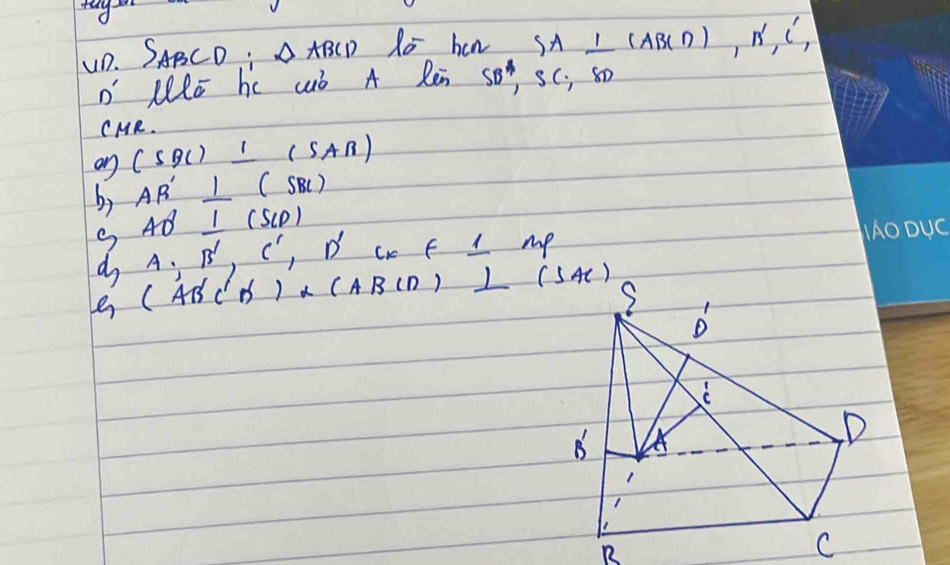 VD. SABCD; △ ABCD là hcn SA ⊥ (ABCD), B', C',
D' lllà hc của A lên SB, SC; SD
CMR.
a) (SBC) ⊥ (SAB)
b) AB' ⊥ (SBC)
c) AD' ⊥ (SCD)
d) A; B', C', D' ∈ 1 mp
e) (AB'C'D') & (ABCD) ⊥ (SAC)
S
D'
C'
B'
A
D
B
C
IÁO DỤC